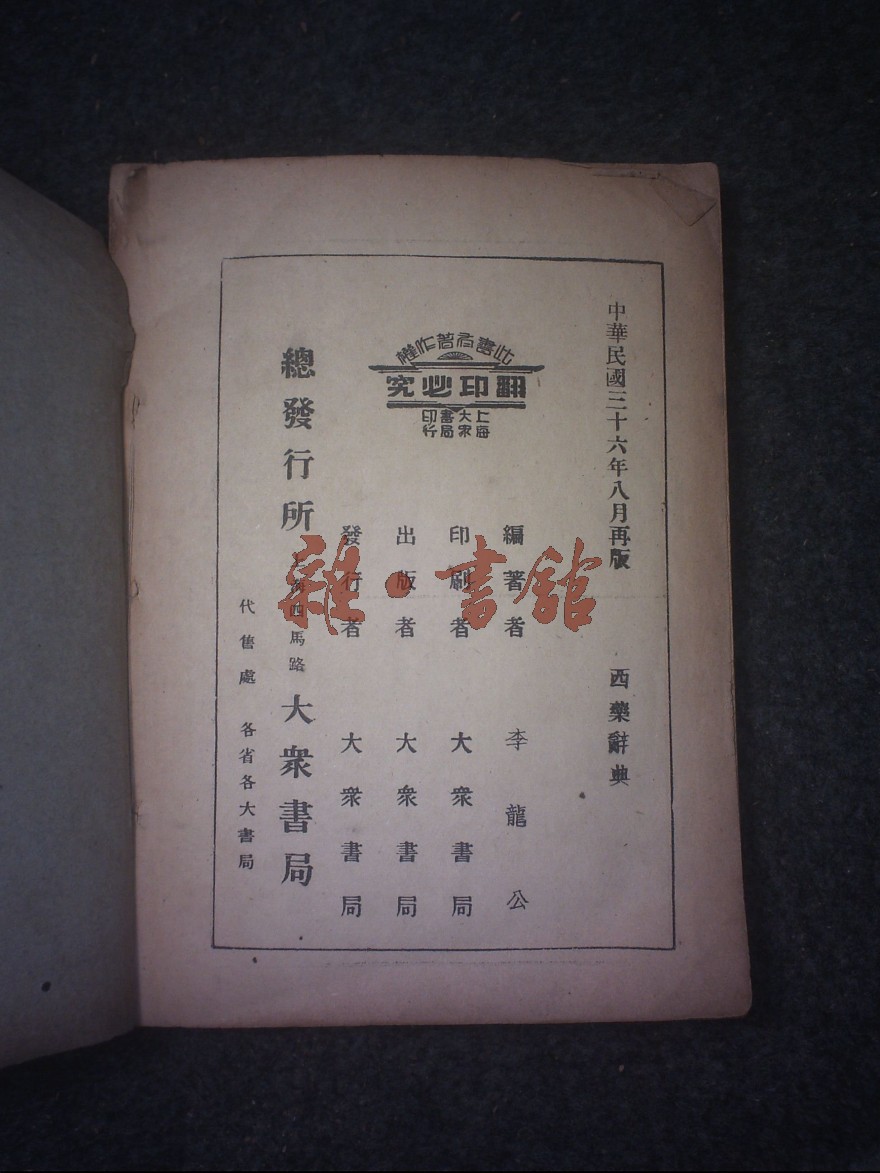 中華民國三十六年八月再版
西藥辭典
此書有著作權
翻印必究
上海
大衆
書局
印行
編著者 李龍公
印刷者 大衆書局
出版者 大衆書局
發行者 大衆書局
總發行所 上海四馬路 大衆書局
代售處 各省各大書局
雜·書館